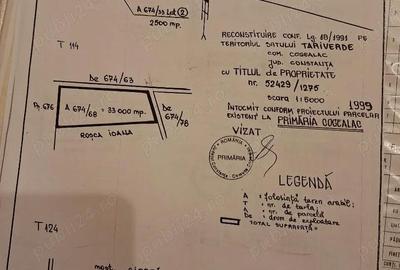 A 674/33 Lot 2
2500 mp.
T 114
De 674/63
Pș 676
A 674/68 = 33 000 mp.
De 674/78
ROȘCA IOANA
T 124
RECONSTITUIRE CONF. Lg. 18/1991 PE
TERITORIUL SATULUI TARIVERDE
COM. COGEALAC
JUD. CONSTANȚA
CU TITLUL de PROPRIETATE
nr. 52429/1275
scara 1:5000
1999
INTOCMIT CONFORM PROIECTULUI PARCELAR
EXISTENT LA PRIMĂRIA COGEALAC
VIZAT
ROMÂNIA
PRIMĂRIA
LEGENDĂ
A : folosință teren arabil;
T : nr. de tarla;
A : nr. de parcelă
De : drum de exploatare
TOTAL SUPRAFAȚĂ